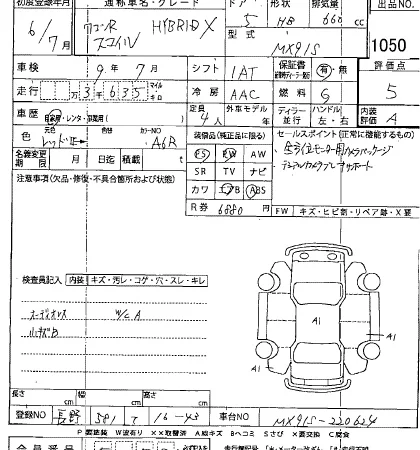 初度登録年月 通称車名・グレード ドア 形状 排気量 出品NO
6/7月 ワゴンR スマイル HYBRID X 5 HB 660 cc
型式 MX91S 1050
車検 9年 7月 シフト IAT 保証書 有・無 評価点
走行 3 635 マイル キロ 冷房 AAC 燃料 G 5
車歴 自家用・レンタ・ 定員 4人 外車モデル ディーラー 並行 ハンドル 左・右 内装評価 A
色 カラーNO A6R
装備品(純正品に限る) セールスポイント(正常に機能するもの)
名義変更期限 月 日迄 積載 t
PS PW AW
全方位モニター用カメラパッケージ
SR TV ナビ
デュアルカメラブレーキサポート
注意事項(欠品・修復・不具合箇所および状態)
カワ エアB ABS
R券 6880円
FW キズ・ヒビ割・リペア跡・X要
検査員記入 内装 キズ・汚レ・コゲ・穴・スレ・キレ
オーディオレス W/C A
小キズB
A1
A1
A1
長さ cm 幅 cm 高さ cm
登録NO 長野 581 て 16-43 車台NO MX91S-220624
P要塗装 W波有り XX取替済 A線キズ Bヘコミ Sさび X要交換 C腐食
会員番号